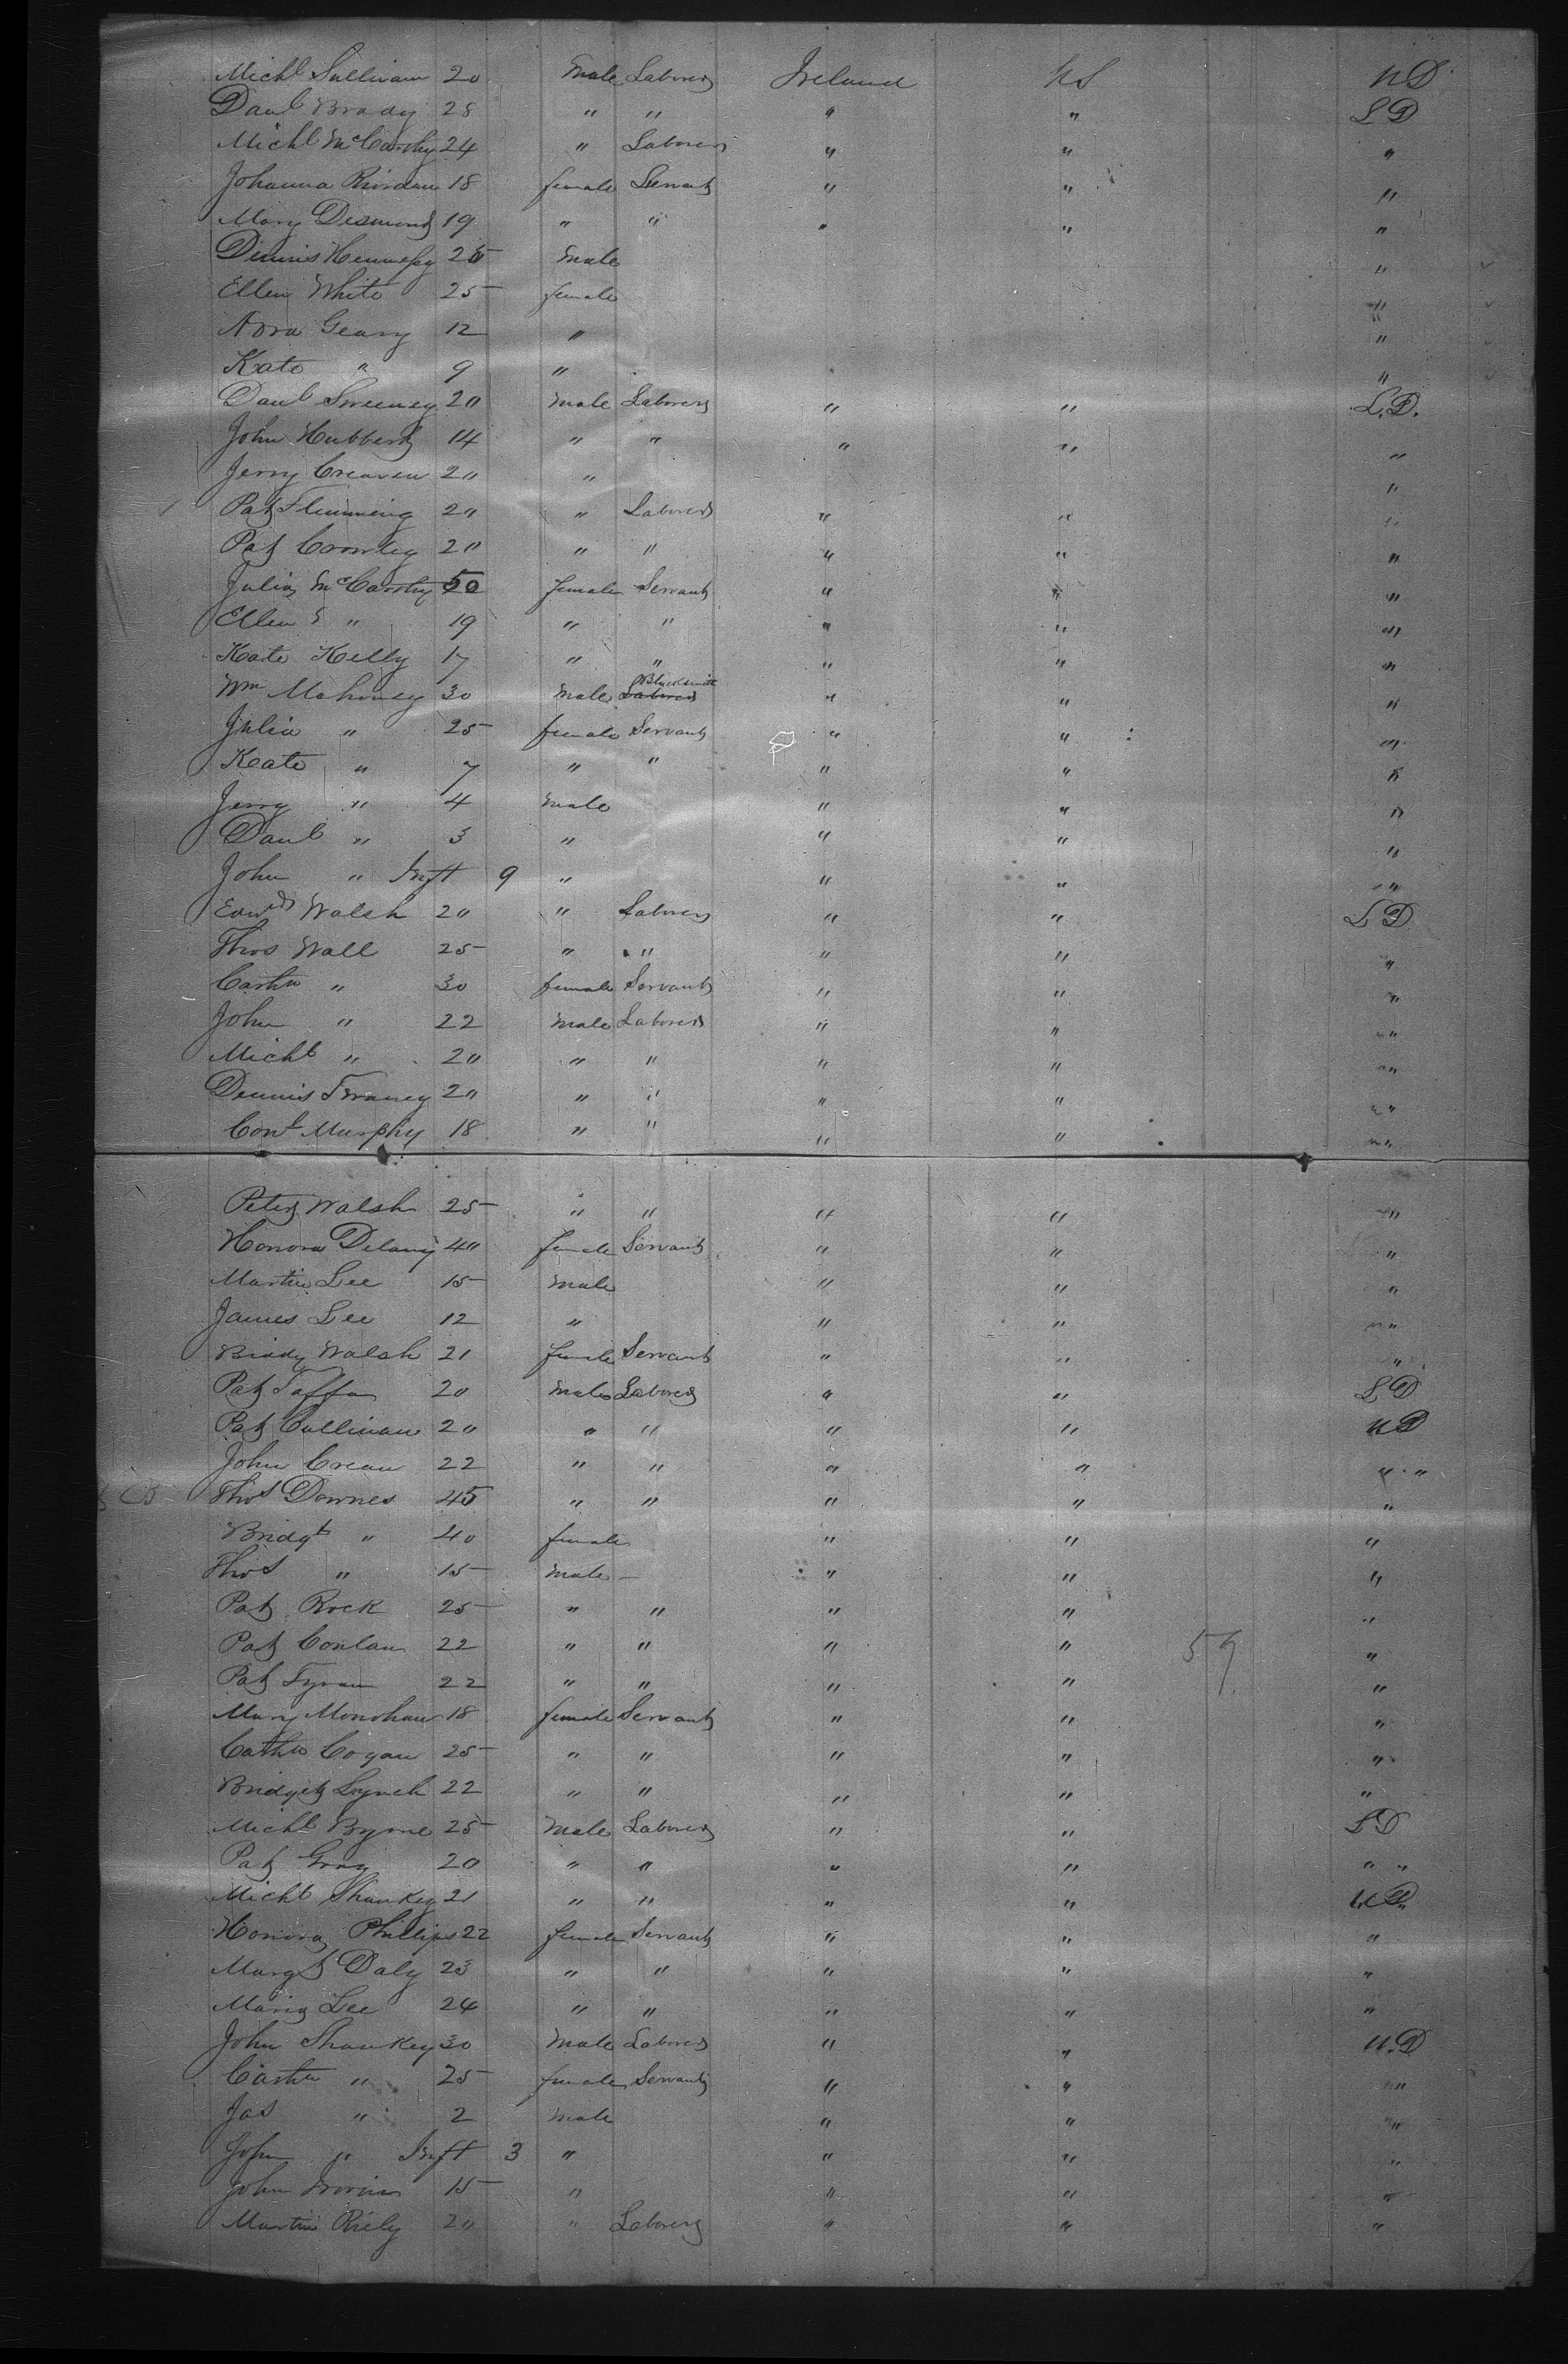 Michl Sullivan 20 Male Laborer Ireland US UD
Danl Brady 28 " " " " LD
Michl McCarthy 24 " Laborer " " "
Johanna Riordan 18 female Servant " " "
Mary Desmond 19 " " " " "
Dennis Hennessy 25 Male "
Ellen White 25 female "
Nora Geary 12 " "
Kate " 9 " "
Danl Sweeney 20 Male Laborer " " L.D.
John Hubbert 14 " " " " "
Jerry Creaven 20 " "
Pat Flemming 20 " Laborer " " "
Pat Crowley 20 " " " " "
Julia McCarthy 50 female Servant " " "
Ellen " 19 " " " " "
Kate Kelly 17 " " " " "
Wm Mahoney 30 Male Blacksmith " " "
Julia " 25 female Servant " " "
Kate " 7 " " " " "
Jerry " 4 Male " " "
Danl " 3 " " " "
John " Inft 9 " " " "
Edwd Walsh 20 " Laborer " " LD
Thos Wall 25 " " " " "
Cathn " 30 female Servant " " "
John " 22 Male Laborer " " "
Michl " 20 " " " " "
Dennis 20 " " " " "
Conl Murphy 18 " " " " "
Peter Walsh 25 " " " " "
Honora Delany 40 female Servant " " "
Martin Lee 15 Male " " "
James Lee 12 " " " "
Biddy Walsh 21 female Servant " " "
Pat 20 Male Laborer " " LD
Pat Cullinan 20 " " " " UD
John Crean 22 " " " " " "
Thos Downes 45 " " " " "
Bridgt " 40 female " " "
Thos " 15 Male — " " "
Pat Rock 25 " " " " "
Pat Conlan 22 " " " " 59 "
Pat Tynan 22 " " " " "
Mary Monohan 18 female Servant " " "
Cathn Cogan 25 " " " " "
Bridget Lynch 22 " " " " "
Michl Byrne 25 Male Laborer " " LD
Pat Gray 20 " " " " " "
Michl Shankey 21 " " " " UD
Honora Phillips 22 female Servant " " "
Margt Daly 23 " " " " "
Maria Lee 24 " " " " "
John Shankey 30 Male Laborer " " U.D
Cathn " 25 female Servant " " "
Jas " 2 Male " " "
John " Inft 3 " " " "
John 15 " " " "
Martin Riely 20 " Laborer " " "